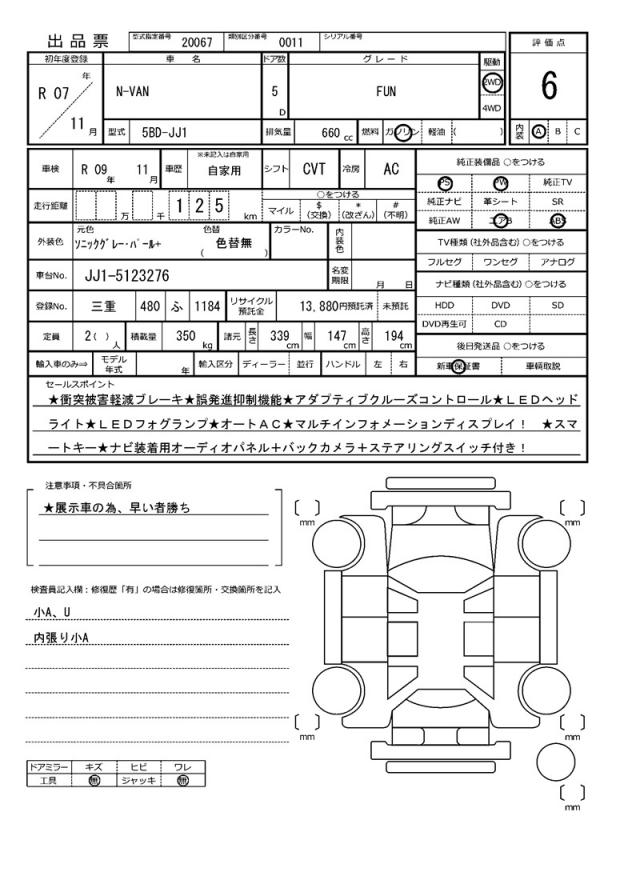 出品票 型式指定番号 20067 類別区分番号 0011 シリアル番号
初年度登録 車名 ドア数 グレード 駆動 評価点
R 07 年 11 月 N-VAN 5 D FUN 2WD 4WD 6
型式 5BD-JJ1 排気量 660 cc 燃料 ガソリン 軽油 ( ) 内装 A B C
車検 R 09 年 11 月 車歴 ※未記入は自家用 自家用 シフト CVT 冷房 AC
走行距離 万 千 1 2 5 km ○をつける
マイル $ (交換) * (改ざん) # (不明)
外装色 元色 ソニックグレー・パール+ 色替 ( 色替無 ) カラーNo. 内装色
車台No. JJ1-5123276 名変期限 月 日
登録No. 三重 480 ふ 1184 リサイクル預託金 13,880円預託済 未預託
定員 2( ) 人 積載量 350 kg 諸元 長さ 339 cm 幅 147 cm 高さ 194 cm
輸入車のみ⇒ モデル年式 年 輸入区分 ディーラー 並行 ハンドル 左 右
純正装備品 ○をつける
PS PW 純正TV
純正ナビ 革シート SR
純正AW エアB ABS
TV種類 (社外品含む) ○をつける
フルセグ ワンセグ アナログ
ナビ種類 (社外品含む) ○をつける
HDD DVD SD
DVD再生可 CD
後日発送品 ○をつける
新車保証書 車輌取説
セールスポイント
★衝突被害軽減ブレーキ★誤発進抑制機能★アダプティブクルーズコントロール★LEDヘッド
ライト★LEDフォグランプ★オートAC★マルチインフォメーションディスプレイ! ★スマ
ートキー★ナビ装着用オーディオパネル+バックカメラ+ステアリングスイッチ付き!
注意事項・不具合箇所
★展示車の為、早い者勝ち
検査員記入欄:修復歴「有」の場合は修復箇所・交換箇所を記入
小A、U
内張り小A
ドアミラー キズ ヒビ ワレ
工具 無 ジャッキ 無
[ ] mm [ ] mm
[ ] mm [ ] mm
[ ] mm